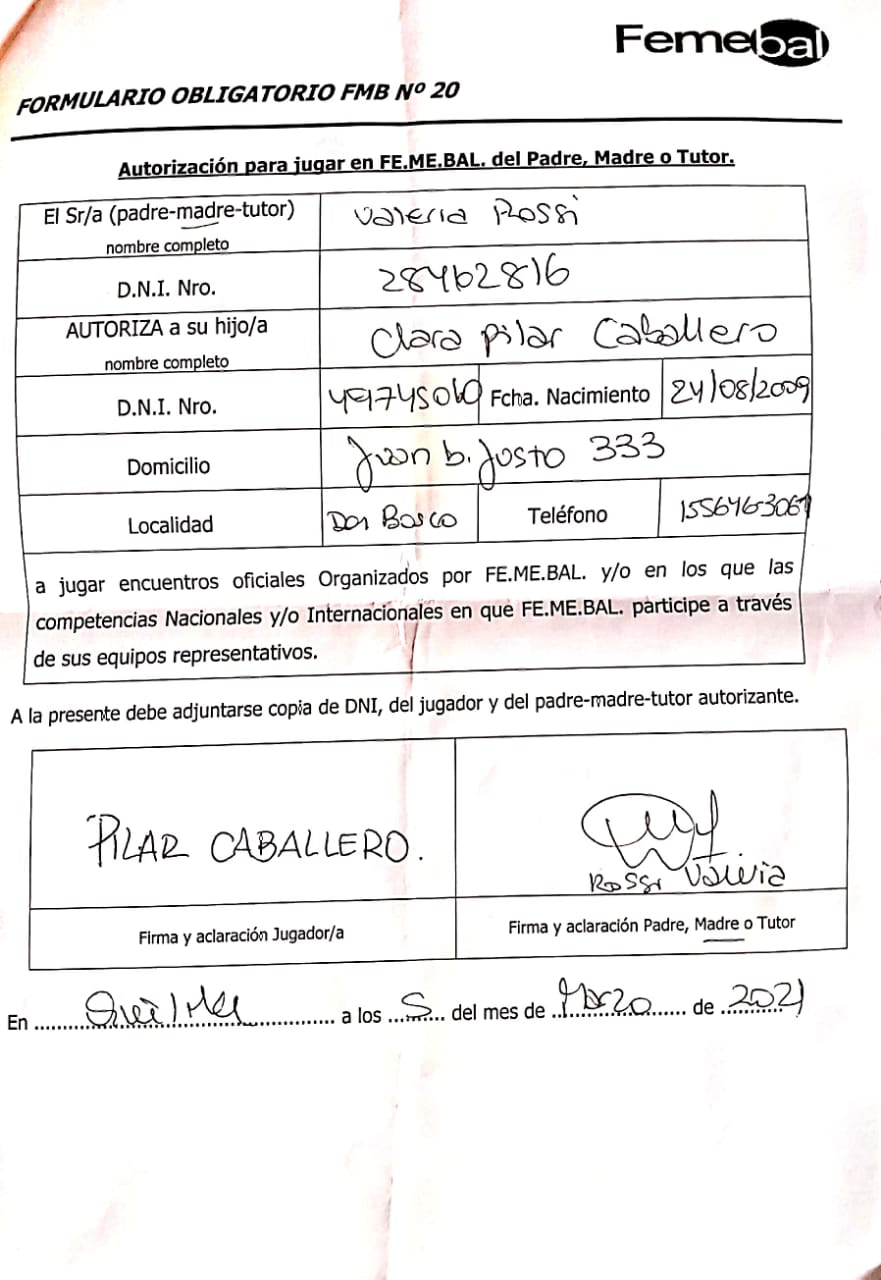 Femebal
FORMULARIO OBLIGATORIO FMB Nº 20
Autorización para jugar en FE.ME.BAL. del Padre, Madre o Tutor.
El Sr/a (padre-madre-tutor) Valeria Rossi
nombre completo
D.N.I. Nro. 28462816
AUTORIZA a su hijo/a Clara pilar Caballero
nombre completo
D.N.I. Nro. 49745060 Fcha. Nacimiento 24/08/2009
Domicilio Juan b. Justo 333
Localidad Don Bosco Teléfono
a jugar encuentros oficiales Organizados por FE.ME.BAL. y/o en los que las
competencias Nacionales y/o Internacionales en que FE.ME.BAL. participe a través
de sus equipos representativos.
A la presente debe adjuntarse copia de DNI, del jugador y del padre-madre-tutor autorizante.
PILAR CABALLERO.
Rossi Valeria
Firma y aclaración Jugador/a Firma y aclaración Padre, Madre o Tutor
En Quilmes a los 5 del mes de Marzo de 2021